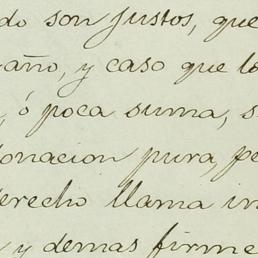 do son justos, que
año, y caso que lo
, ó poca suma, s
onacion pura, pe
erecho llama in
y demas firme